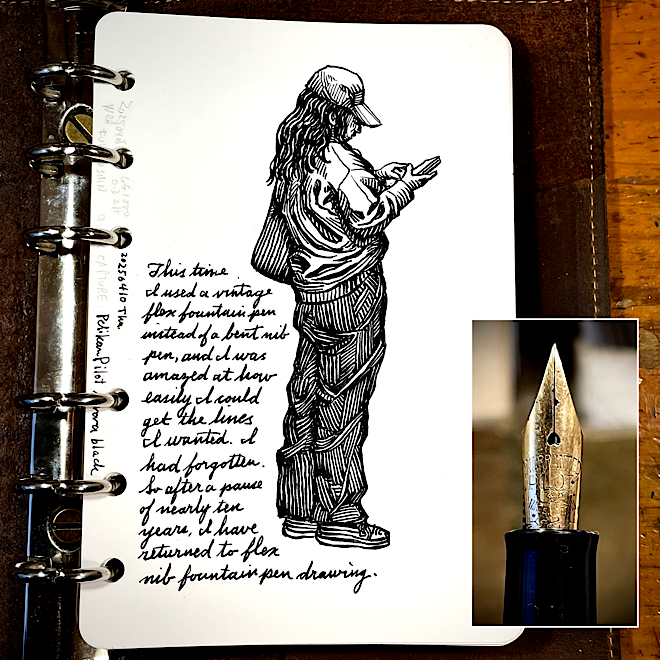 This time
I used a vintage
flex fountain pen
instead of a bent nib
pen, and I was
amazed at how
easily I could
get the lines
I wanted. I
had forgotten.
So after a pause
of nearly ten
years, I have
returned to flex
nib fountain pen drawing.
20250410 Thu.
Pelikan Pilot black